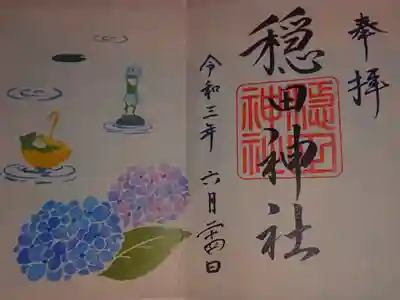 奉拝
穏田神社
隠田
神社
令和三年 六月二十四日